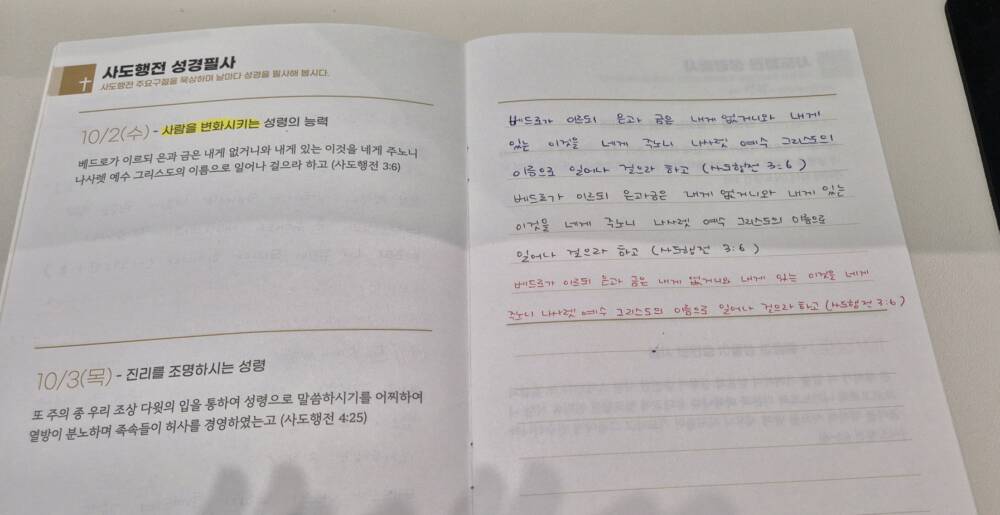 사도행전 성경필사
사도행전 주요구절을 묵상하며 날마다 성경을 필사해 봅시다.
10/2(수) - 사람을 변화시키는 성령의 능력
베드로가 이르되 은과 금은 내게 없거니와 내게 있는 이것을 네게 주노니
나사렛 예수 그리스도의 이름으로 일어나 걸으라 하고 (사도행전 3:6)
10/3(목) - 진리를 조명하시는 성령
또 주의 종 우리 조상 다윗의 입을 통하여 성령으로 말씀하시기를 어찌하여
열방이 분노하며 족속들이 허사를 경영하였는고 (사도행전 4:25)
베드로가 이르되 은과 금은 내게 없거니와 내게
있는 이것을 네게 주노니 나사렛 예수 그리스도의
이름으로 일어나 걸으라 하고 (사도행전 3:6)
베드로가 이르되 은과 금은 내게 없거니와 내게 있는
이것을 네게 주노니 나사렛 예수 그리스도의 이름으로
일어나 걸으라 하고 (사도행전 3:6)
베드로가 이르되 은과 금은 내게 없거니와 내게 있는 이것을 네게
주노니 나사렛 예수 그리스도의 이름으로 일어나 걸으라 하고 (사도행전 3:6)